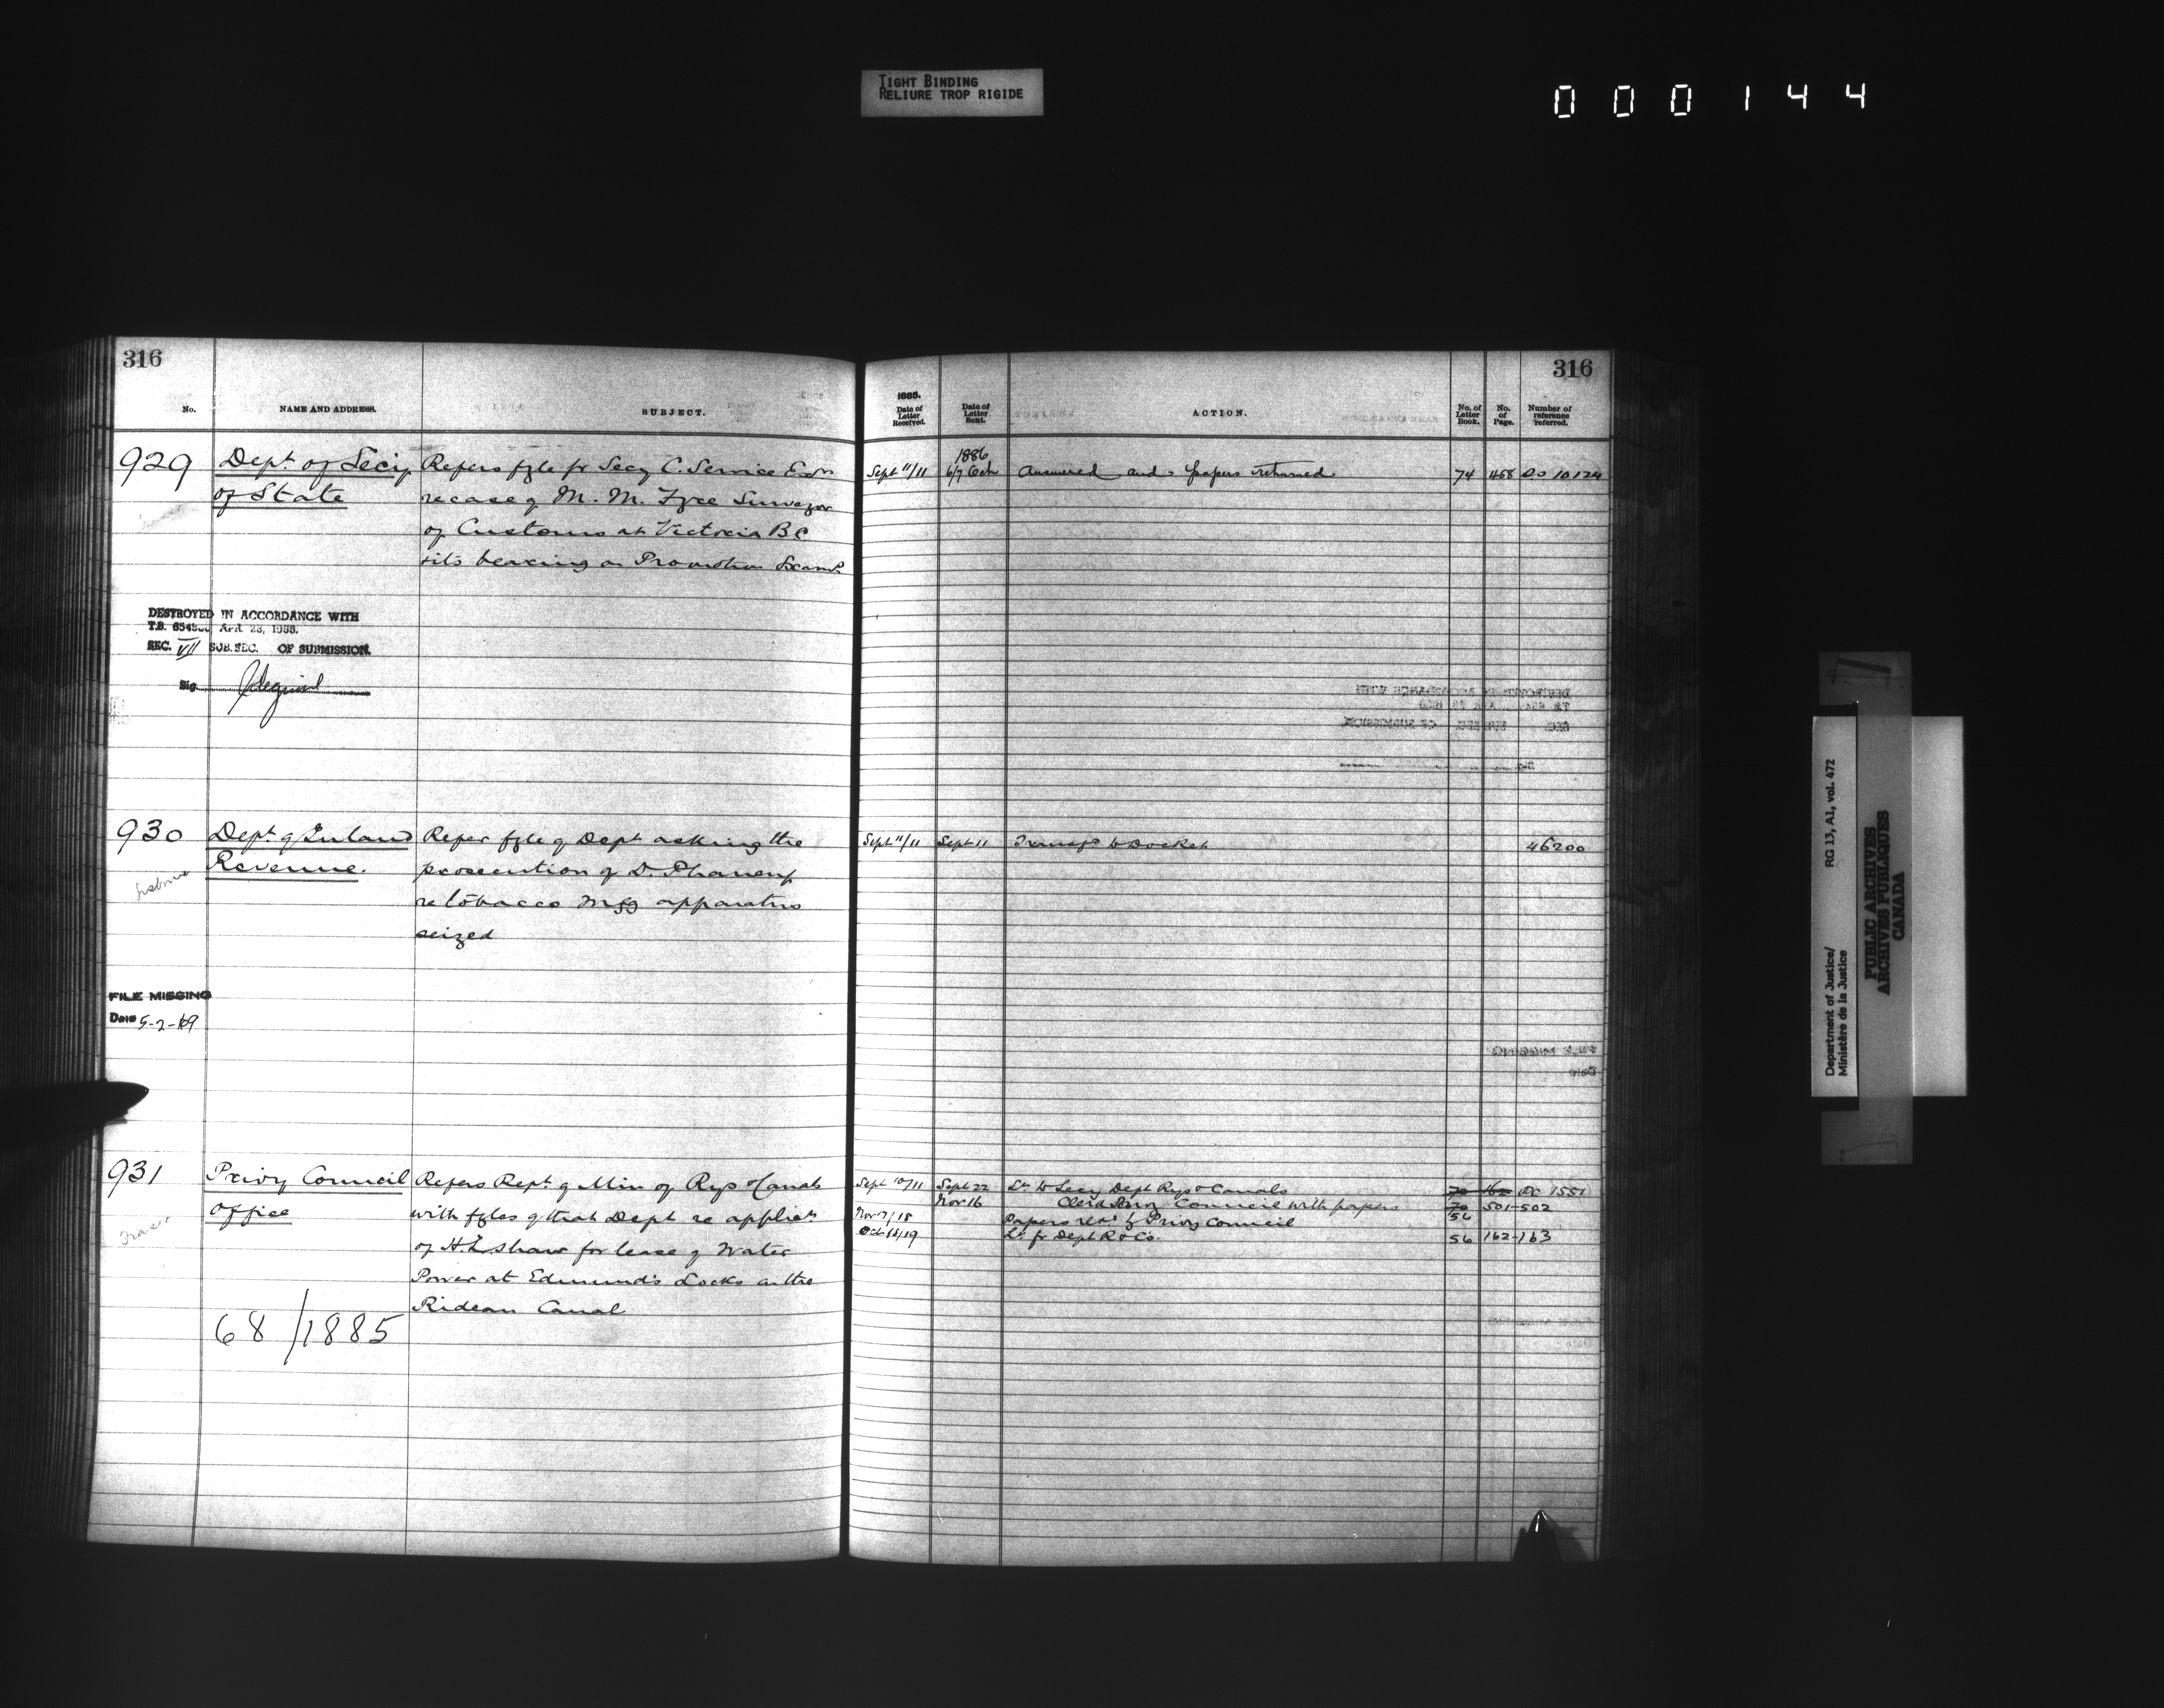 TIGHT BINDING
RELIURE TROP RIGIDE
000144
316
No.
NAME AND ADDRESS.
SUBJECT.
929
Dept. of Secy
of State
Refers fyle fr Secy C. Service Exrs
re case of M. M. Fyce Surveyor
of Customs at Victoria B C
& its bearing on Promotion Exams
DESTROYED IN ACCORDANCE WITH
T.B. APR. 23,
SEC. VII SUB. SEC. OF SUBMISSION.
Sig.
930
Dept. of Inland
Revenue.
Refer fyle of Dept asking the
prosecution of D. Phaneuf
re tobacco Mfg apparatus
seized
FILE MISSING
Date 5-2-
931
Privy Council
Office
Refers Rept. of Min of Rys & Canals
with fyles of that Dept re applicn
of H. L. Shaw for lease of Water
Power at Edmund's Locks on the
Rideau Canal
68/1885
316
1885.
Date of Letter Received.
Date of Letter Sent.
ACTION.
No. of Letter Book.
No. of Page.
Number of reference referred.
1886
Sept 11/11 6/7 Oct Answered and papers returned 74 468 10124
Sept 11/11 Sept 11 Transfd to Docket 46200
Sept 10/11 Sept 22 Lr. to Secy Dept Rys & Canals 70 162 PC 1551
Nov 16 Clerk Privy Council with papers 70 501-502
Nov 17/18 Papers retd. by Privy Council 56
Oct 18/19 Lr. fr Dept R & Cs. 56 162-163
Department of Justice/
Ministère de la Justice
RG 13, A1, vol. 472
PUBLIC ARCHIVES
ARCHIVES PUBLIQUES
CANADA